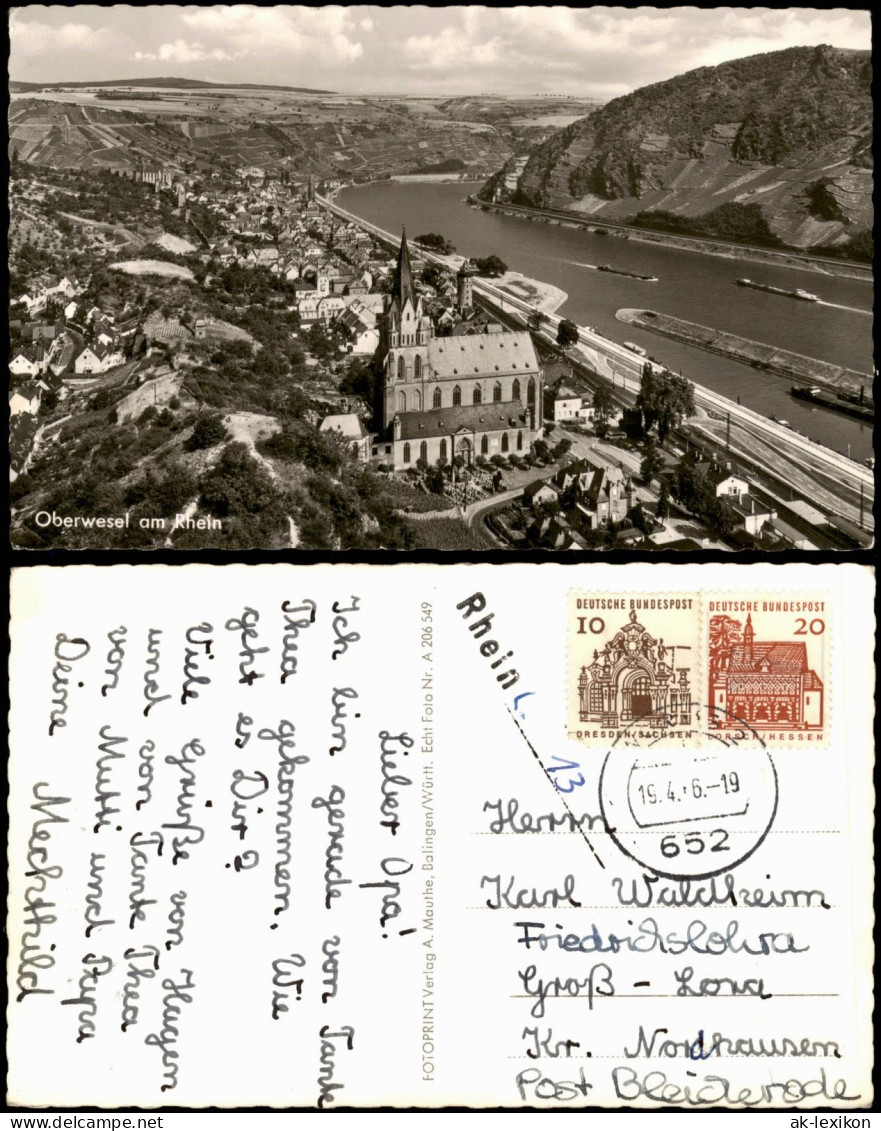 Oberwesel am Rhein
Lieber Opa!
Ich bin gerade von Tante
Thea gekommen. Wie
geht es Dir?
Viele Grüße von Hagen
und von Tante Thea
von Mutti und Papa
Deine
Mechthild
FOTOPRINT Verlag A. Mauthe, Balingen/Württ. Echt Foto Nr. A 206 549
Rhein
13
DEUTSCHE BUNDESPOST
10
DRESDEN/SACHSEN
DEUTSCHE BUNDESPOST
20
LORSCH/HESSEN
19.4. 6.-19
652
Herrn
Karl Waldheim
Friedrichslohra
Groß - Lora
Kr. Nordhausen
Post Bleiderode
ak-lexikon